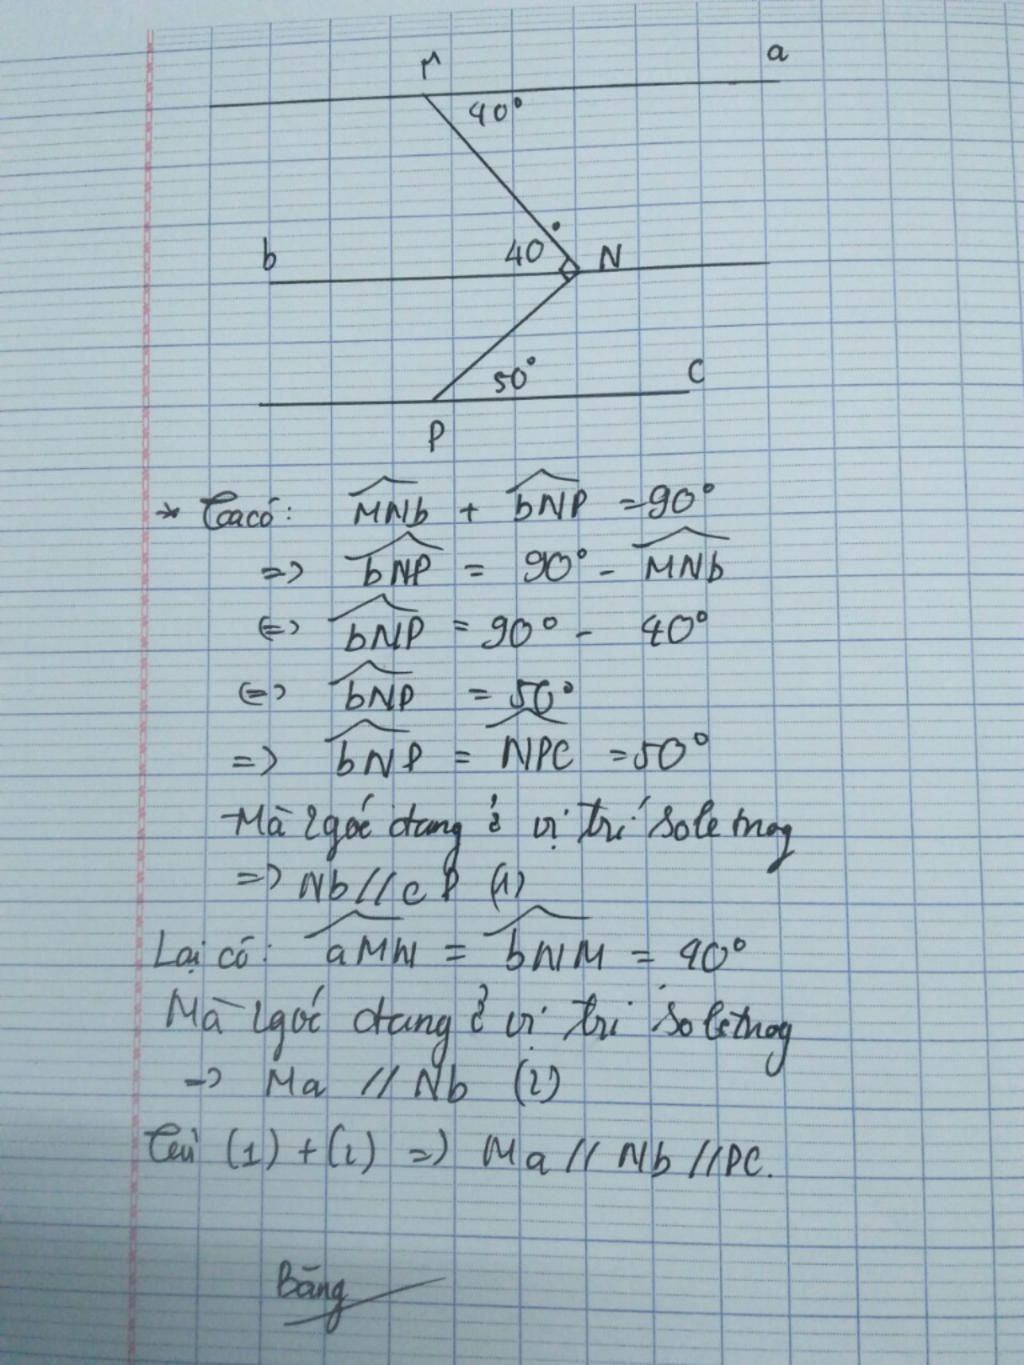 M a
40°
b 40° N
50° C
P
* Ta có: MNb + bNP = 90°
=> bNP = 90° - MNb
<=> bNP = 90° - 40°
<=> bNP = 50°
=> bNP = NPC = 50°
Mà 2 góc đang ở vị trí sole trong
=> Nb // cP (1)
Lại có: aMN = bNM = 40°
Mà 2 góc đang ở vị trí sole trong
=> Ma // Nb (2)
Từ (1) + (2) => Ma // Nb // PC.
Băng